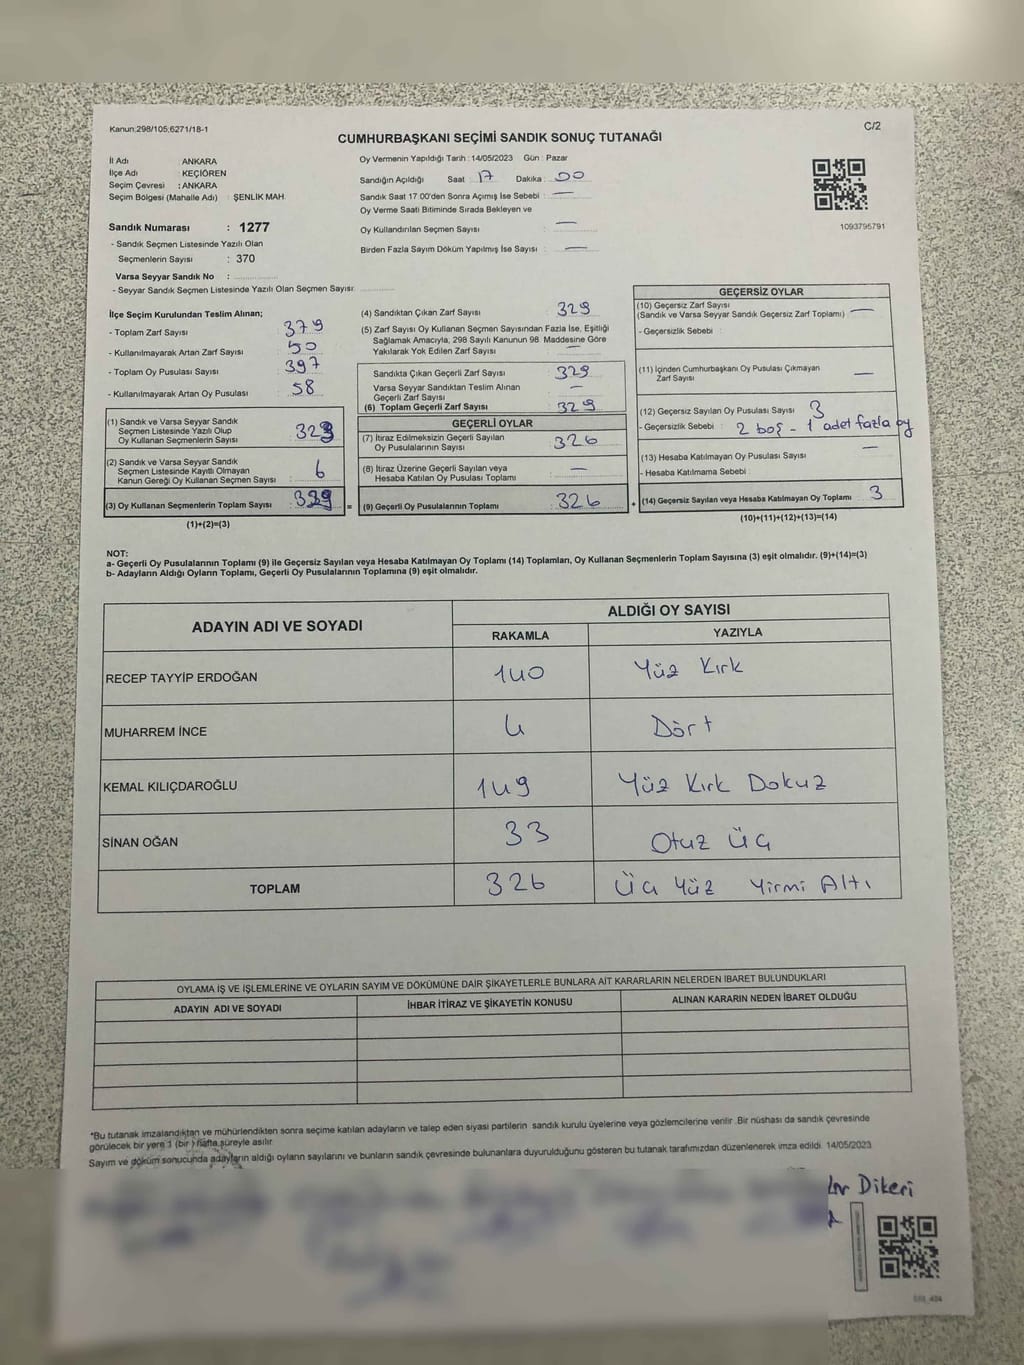 Kanun:298/105;6271/18-1
C/2
CUMHURBAŞKANI SEÇİMİ SANDIK SONUÇ TUTANAĞI
İl Adı : ANKARA
İlçe Adı : KEÇİÖREN
Seçim Çevresi : ANKARA
Seçim Bölgesi (Mahalle Adı) : ŞENLİK MAH.
Sandık Numarası : 1277
- Sandık Seçmen Listesinde Yazılı Olan
Seçmenlerin Sayısı : 370
Varsa Seyyar Sandık No :
- Seyyar Sandık Seçmen Listesinde Yazılı Olan Seçmen Sayısı:
Oy Vermenin Yapıldığı Tarih : 14/05/2023 Gün : Pazar
Sandığın Açıldığı Saat : 17 Dakika : 00
Sandık Saat 17.00'den Sonra Açımış İse Sebebi : —
Oy Verme Saati Bitiminde Sırada Bekleyen ve
Oy Kullandırılan Seçmen Sayısı : —
Birden Fazla Sayım Döküm Yapılmış İse Sayısı : —
1093795791
İlçe Seçim Kurulundan Teslim Alınan;
- Toplam Zarf Sayısı 379
- Kullanılmayarak Artan Zarf Sayısı 50
- Toplam Oy Pusulası Sayısı 397
- Kullanılmayarak Artan Oy Pusulası 58
(1) Sandık ve Varsa Seyyar Sandık
Seçmen Listesinde Yazılı Olup
Oy Kullanan Seçmenlerin Sayısı 323
(2) Sandık ve Varsa Seyyar Sandık
Seçmen Listesinde Kayıtlı Olmayan
Kanun Gereği Oy Kullanan Seçmen Sayısı 6
(3) Oy Kullanan Seçmenlerin Toplam Sayısı
(1)+(2)=(3)
(4) Sandıktan Çıkan Zarf Sayısı 329
(5) Zarf Sayısı Oy Kullanan Seçmen Sayısından Fazla İse, Eşitliği
Sağlamak Amacıyla, 298 Sayılı Kanunun 98. Maddesine Göre
Yakılarak Yok Edilen Zarf Sayısı —
Sandıkta Çıkan Geçerli Zarf Sayısı 329
Varsa Seyyar Sandıktan Teslim Alınan
Geçerli Zarf Sayısı —
(6) Toplam Geçerli Zarf Sayısı 329
GEÇERLİ OYLAR
(7) İtiraz Edilmeksizin Geçerli Sayılan
Oy Pusulalarının Sayısı 326
(8) İtiraz Üzerine Geçerli Sayılan veya
Hesaba Katılan Oy Pusulası Toplamı —
= (9) Geçerli Oy Pusulalarının Toplamı 326
GEÇERSİZ OYLAR
(10) Geçersiz Zarf Sayısı
(Sandık ve Varsa Seyyar Sandık Geçersiz Zarf Toplamı) —
- Geçersizlik Sebebi :
(11) İçinden Cumhurbaşkanı Oy Pusulası Çıkmayan
Zarf Sayısı —
(12) Geçersiz Sayılan Oy Pusulası Sayısı 3
- Geçersizlik Sebebi : 2 boş - 1 adet fazla oy
(13) Hesaba Katılmayan Oy Pusulası Sayısı —
- Hesaba Katılmama Sebebi :
+ (14) Geçersiz Sayılan veya Hesaba Katılmayan Oy Toplamı 3
(10)+(11)+(12)+(13)=(14)
NOT:
a- Geçerli Oy Pusulalarının Toplamı (9) ile Geçersiz Sayılan veya Hesaba Katılmayan Oy Toplamı (14) Toplamları, Oy Kullanan Seçmenlerin Toplam Sayısına (3) eşit olmalıdır. (9)+(14)=(3)
b- Adayların Aldığı Oyların Toplamı, Geçerli Oy Pusulalarının Toplamına (9) eşit olmalıdır.
ADAYIN ADI VE SOYADI
ALDIĞI OY SAYISI
RAKAMLA YAZIYLA
RECEP TAYYİP ERDOĞAN 140 Yüz Kırk
MUHARREM İNCE 4 Dört
KEMAL KILIÇDAROĞLU 149 Yüz Kırk Dokuz
SİNAN OĞAN 33 Otuz Üç
TOPLAM 326 Üç Yüz Yirmi Altı
OYLAMA İŞ VE İŞLEMLERİNE VE OYLARIN SAYIM VE DÖKÜMÜNE DAİR ŞİKAYETLERLE BUNLARA AİT KARARLARIN NELERDEN İBARET BULUNDUKLARI
ADAYIN ADI VE SOYADI İHBAR İTİRAZ VE ŞİKAYETİN KONUSU ALINAN KARARIN NEDEN İBARET OLDUĞU
*Bu tutanak imzalandıktan ve mühürlendikten sonra seçime katılan adayların ve talep eden siyasi partilerin sandık kurulu üyelerine veya gözlemcilerine verilir. Bir nüshası da sandık çevresinde
görülecek bir yere 1 (bir) hafta süreyle asılır.
Sayım ve döküm sonucunda adayların aldığı oyların sayılarını ve bunların sandık çevresinde bulunanlara duyurulduğunu gösteren bu tutanak tarafımızdan düzenlenerek imza edildi. 14/05/2023
Dikeri